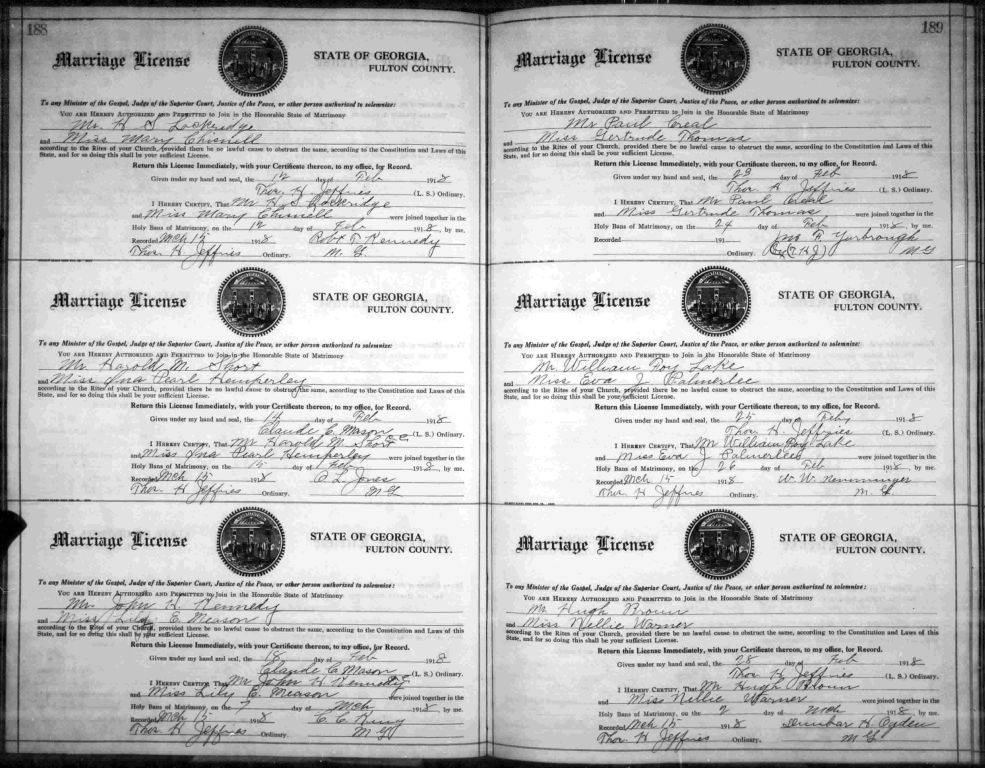 188
Marriage License
STATE OF GEORGIA,
FULTON COUNTY.
To any Minister of the Gospel, Judge of the Superior Court, Justice of the Peace, or other person authorized to solemnize:
YOU ARE HEREBY AUTHORIZED AND PERMITTED to Join in the Honorable State of Matrimony
Mr. H S Lockridge
and Miss Mary Chisnell
according to the Rites of your Church, provided there be no lawful cause to obstruct the same, according to the Constitution and Laws of this
State, and for so doing this shall be your sufficient License.
Return this License Immediately, with your Certificate thereon, to my office, for Record.
Given under my hand and seal, the 12 day of Feb 1918
Thos. H. Jeffries (L. S.) Ordinary.
I HEREBY CERTIFY, That Mr H. S Lockridge
and Miss Mary Chisnell were joined together in the
Holy Bans of Matrimony, on the 12 day of Feb 1918, by me.
Recorded Mch 15 1918 Robt T. Kennedy
Thos. H Jeffries Ordinary. M. G.
Marriage License
STATE OF GEORGIA,
FULTON COUNTY.
To any Minister of the Gospel, Judge of the Superior Court, Justice of the Peace, or other person authorized to solemnize:
YOU ARE HEREBY AUTHORIZED AND PERMITTED to Join in the Honorable State of Matrimony
Mr. Harold M. Short
and Miss Ina Pearl Hemperley
according to the Rites of your Church, provided there be no lawful cause to obstruct the same, according to the Constitution and Laws of this
State, and for so doing this shall be your sufficient License.
Return this License Immediately, with your Certificate thereon, to my office, for Record.
Given under my hand and seal, the 14 day of Feb 1918
Claude C. Mason (L. S.) Ordinary.
I HEREBY CERTIFY, That Mr Harold M. Short
and Miss Ina Pearl Hemperley were joined together in the
Holy Bans of Matrimony, on the 15 day of Feb 1918, by me.
Recorded Mch 15 1918 C L. Jones
Thos. H Jeffries Ordinary. M G
Marriage License
STATE OF GEORGIA,
FULTON COUNTY.
To any Minister of the Gospel, Judge of the Superior Court, Justice of the Peace, or other person authorized to solemnize:
YOU ARE HEREBY AUTHORIZED AND PERMITTED to Join in the Honorable State of Matrimony
Mr. John H. Kennedy
and Miss Lily E. Meason
according to the Rites of your Church, provided there be no lawful cause to obstruct the same, according to the Constitution and Laws of this
State, and for so doing this shall be your sufficient License.
Return this License Immediately, with your Certificate thereon, to my office, for Record.
Given under my hand and seal, the 18 day of Feb 1918
Claude C. Mason (L. S.) Ordinary.
I HEREBY CERTIFY, That Mr John H. Kennedy
and Miss Lily E. Meason were joined together in the
Holy Bans of Matrimony, on the 7 day of Mch 1918, by me.
Recorded Mch 15 1918 C. C. King
Thos H Jeffries Ordinary. M G
189
Marriage License
STATE OF GEORGIA,
FULTON COUNTY.
To any Minister of the Gospel, Judge of the Superior Court, Justice of the Peace, or other person authorized to solemnize:
YOU ARE HEREBY AUTHORIZED AND PERMITTED to Join in the Honorable State of Matrimony
Mr Paul Creal
and Miss Gertrude Thomas
according to the Rites of your Church, provided there be no lawful cause to obstruct the same, according to the Constitution and Laws of this
State, and for so doing this shall be your sufficient License.
Return this License Immediately, with your Certificate thereon, to my office, for Record.
Given under my hand and seal, the 23 day of Feb 1918
Thos H Jeffries (L. S.) Ordinary.
I HEREBY CERTIFY, That Mr Paul Creal
and Miss Gertrude Thomas were joined together in the
Holy Bans of Matrimony, on the 24 day of Feb 1918, by me.
Recorded 191 Jno F. Yarbrough
Ordinary. (T. H J) M G
Marriage License
STATE OF GEORGIA,
FULTON COUNTY.
To any Minister of the Gospel, Judge of the Superior Court, Justice of the Peace, or other person authorized to solemnize:
YOU ARE HEREBY AUTHORIZED AND PERMITTED to Join in the Honorable State of Matrimony
Mr. William Roy Lake
and Miss Eva J Palmerlee
according to the Rites of your Church, provided there be no lawful cause to obstruct the same, according to the Constitution and Laws of this
State, and for so doing this shall be your sufficient License.
Return this License Immediately, with your Certificate thereon, to my office, for Record.
Given under my hand and seal, the 25 day of Feby 1918
Thos H. Jeffries (L. S.) Ordinary.
I HEREBY CERTIFY, That Mr William Roy Lake
and Miss Eva J Palmerlee were joined together in the
Holy Bans of Matrimony, on the 26 day of Feb 1918, by me.
Recorded Mch 15 1918 W. W.
Thos H Jeffries Ordinary. M. G
Marriage License
STATE OF GEORGIA,
FULTON COUNTY.
To any Minister of the Gospel, Judge of the Superior Court, Justice of the Peace, or other person authorized to solemnize:
YOU ARE HEREBY AUTHORIZED AND PERMITTED to Join in the Honorable State of Matrimony
Mr. Hugh Brown
and Miss Nellie Warner
according to the Rites of your Church, provided there be no lawful cause to obstruct the same, according to the Constitution and Laws of this
State, and for so doing this shall be your sufficient License.
Return this License Immediately, with your Certificate thereon, to my office, for Record.
Given under my hand and seal, the 28 day of Feb 1918
Thos H Jeffries (L. S.) Ordinary.
I HEREBY CERTIFY, That Mr Hugh Brown
and Miss Nellie Warner were joined together in the
Holy Bans of Matrimony, on the 2 day of Mch 1918, by me.
Recorded Mch 15 1918 Dunbar H. Ogden
Thos. H Jeffries Ordinary. M G